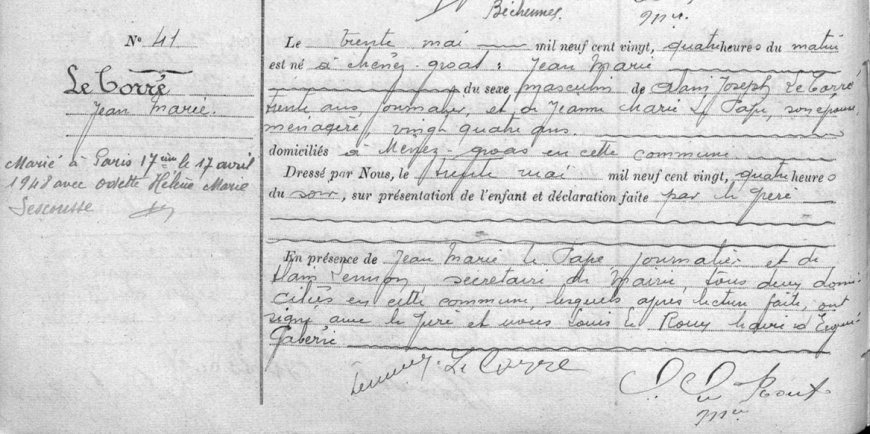 Béchennec.
Mre.
N° 41
Le Corré
Jean Marie.
Marié à Paris 17èm le 17 avril
1948 avec Odette Hélène Marie
Lescousse
Le trente mai mil neuf cent vingt, quatre heures du matin
est né à Menez-groas : Jean Marie
du sexe masculin de Alain Joseph Le Corré
trente ans journalier, et de Jeanne Marie Le Pape, son épouse
ménagère, vingt quatre ans.
domiciliés à Menez-groas en cette commune
Dressé par Nous, le trente mai mil neuf cent vingt, quatre heures
du soir, sur présentation de l'enfant et déclaration faite par le père
En présence de Jean Marie le Pape journalier et de
Alain secrétaire de Mairie, tous deux domi
ciliés en cette commune, lesquels après lecture faite, ont
signé avec le père et nous Louis le Roux Maire d'Ergué
Gabéric
Le Corre
Roux
Mre